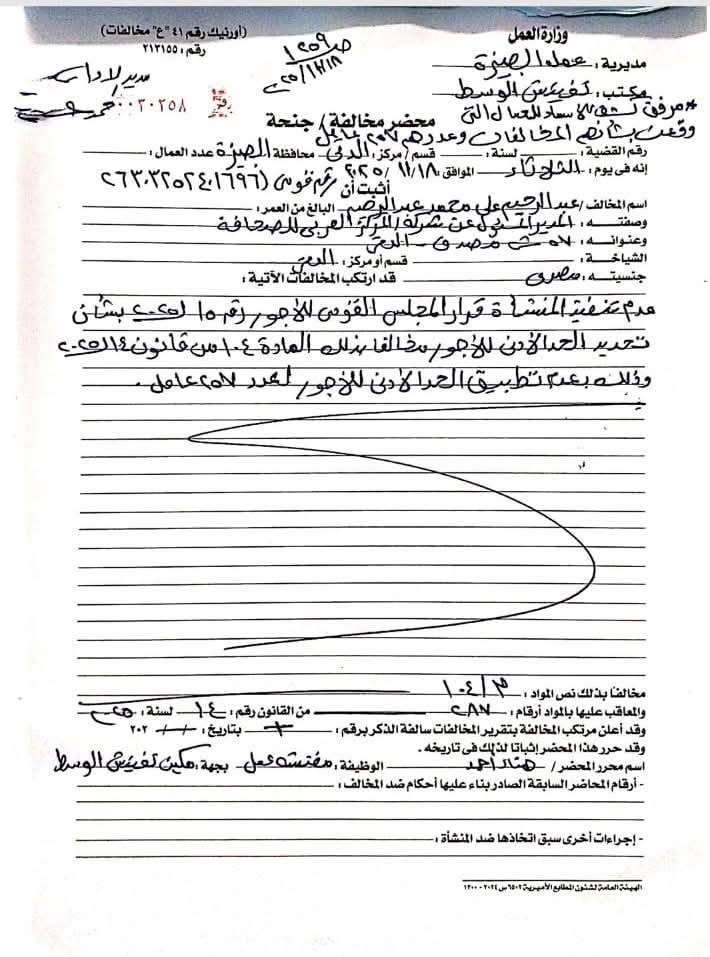 (أورنيك رقم ٤١ "ع" مخالفات)
رقم : ٢١٣١٥٥
وزارة العمل
مديرية : عمل الجيزة
مكتب : تفتيش الوسط
ص ١٢٥٩
مدير الإدارة
٠٠٢٠٢٥٨
* مرفق كشف للأسماء للعمال التي
وقعت بشأنهم المخالفات وعددهم ٢٥٧ عامل
محضر مخالفة / جنحة
رقم القضية : لسنة : قسم / مركز : الدقى محافظة الجيزة عدد العمال :
إنه فى يوم : الثلاثاء الموافق : ١٨ / ١١ / ٢٠٢٥ رقم قومى (٢٦٣٠٣٢٥٢٤٠١٦٩٦)
أثبت أن
اسم المخالف / عبد الرحيم على محمد عبد الرحيم البالغ من العمر :
وصفته : المدير المسئول عن شركة / المركز العربى للصحافة
وعنوانه : ش مصدق - الدقى
الشياخة : قسم أو مركز : الدقى
جنسيته : مصرى قد ارتكب المخالفات الآتية :
عدم تنفيذ المنشأة قرار المجلس القومى للأجور رقم ١٥ لـ ٢٠٢٥ بشأن
تحديد الحد الأدنى للأجور مخالفا بذلك المادة ١٠٤ من قانون ١٤ لـ ٢٠٢٥
وذلك بعدم تطبيق الحد الأدنى للأجور لعدد ٢٥٧ عامل .
مخالفاً بذلك نص المواد : ١٠٤/٣
والمعاقب عليها بالمواد أرقام : ٢٨٧ من القانون رقم : ١٤ لسنة : ٢٠٢٥
وقد أعلن مرتكب المخالفة بتقرير المخالفات سالفة الذكر برقم : بتاريخ : / / ٢٠٢
وقد حرر هذا المحضر إثباتا لذلك فى تاريخه .
اسم محرر المحضر / هناء أحمد الوظيفة : مفتشة عمل بجهة : مكتب تفتيش الوسط
- أرقام المحاضر السابقة الصادر بناء عليها أحكام ضد المخالف :
- إجراءات أخرى سبق اتخاذها ضد المنشأة :
الهيئة العامة لشئون المطابع الأميرية ٦٥٠٢ س ٢٠٢٤ - ١٢٠٠